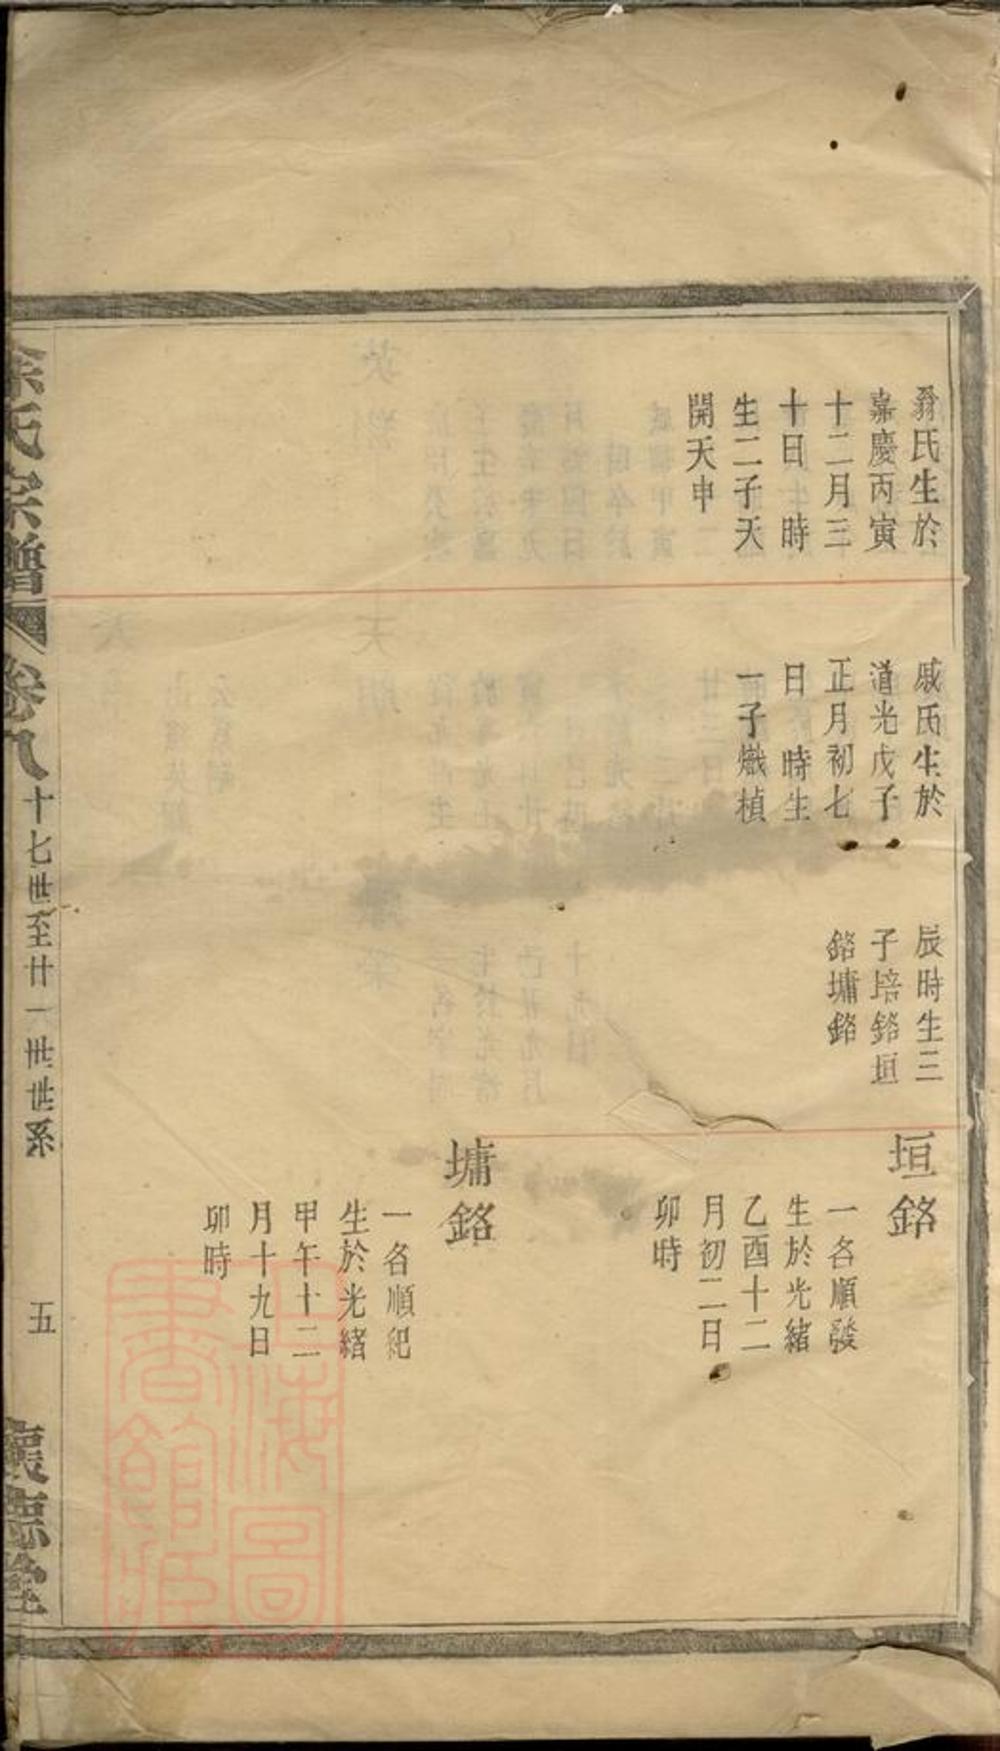 翁氏生於
嘉慶丙寅
十二月三
十日 時
生二子天
開天申
戚氏生於
道光戊子
正月初七
日 時生
一子熾楨
辰時生三
子培銘垣
銘墉銘
垣銘
一名順發
生於光緒
乙酉十二
月初二日
卯時
墉銘
一名順紀
生於光緒
甲午十二
月十九日
卯時
徐氏宗譜
卷八
十七世至廿一世世系
五
懷德堂
上海圖書館藏